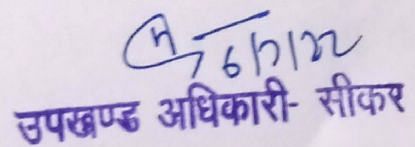 6/7/22
उपखण्ड अधिकारी- सीकर